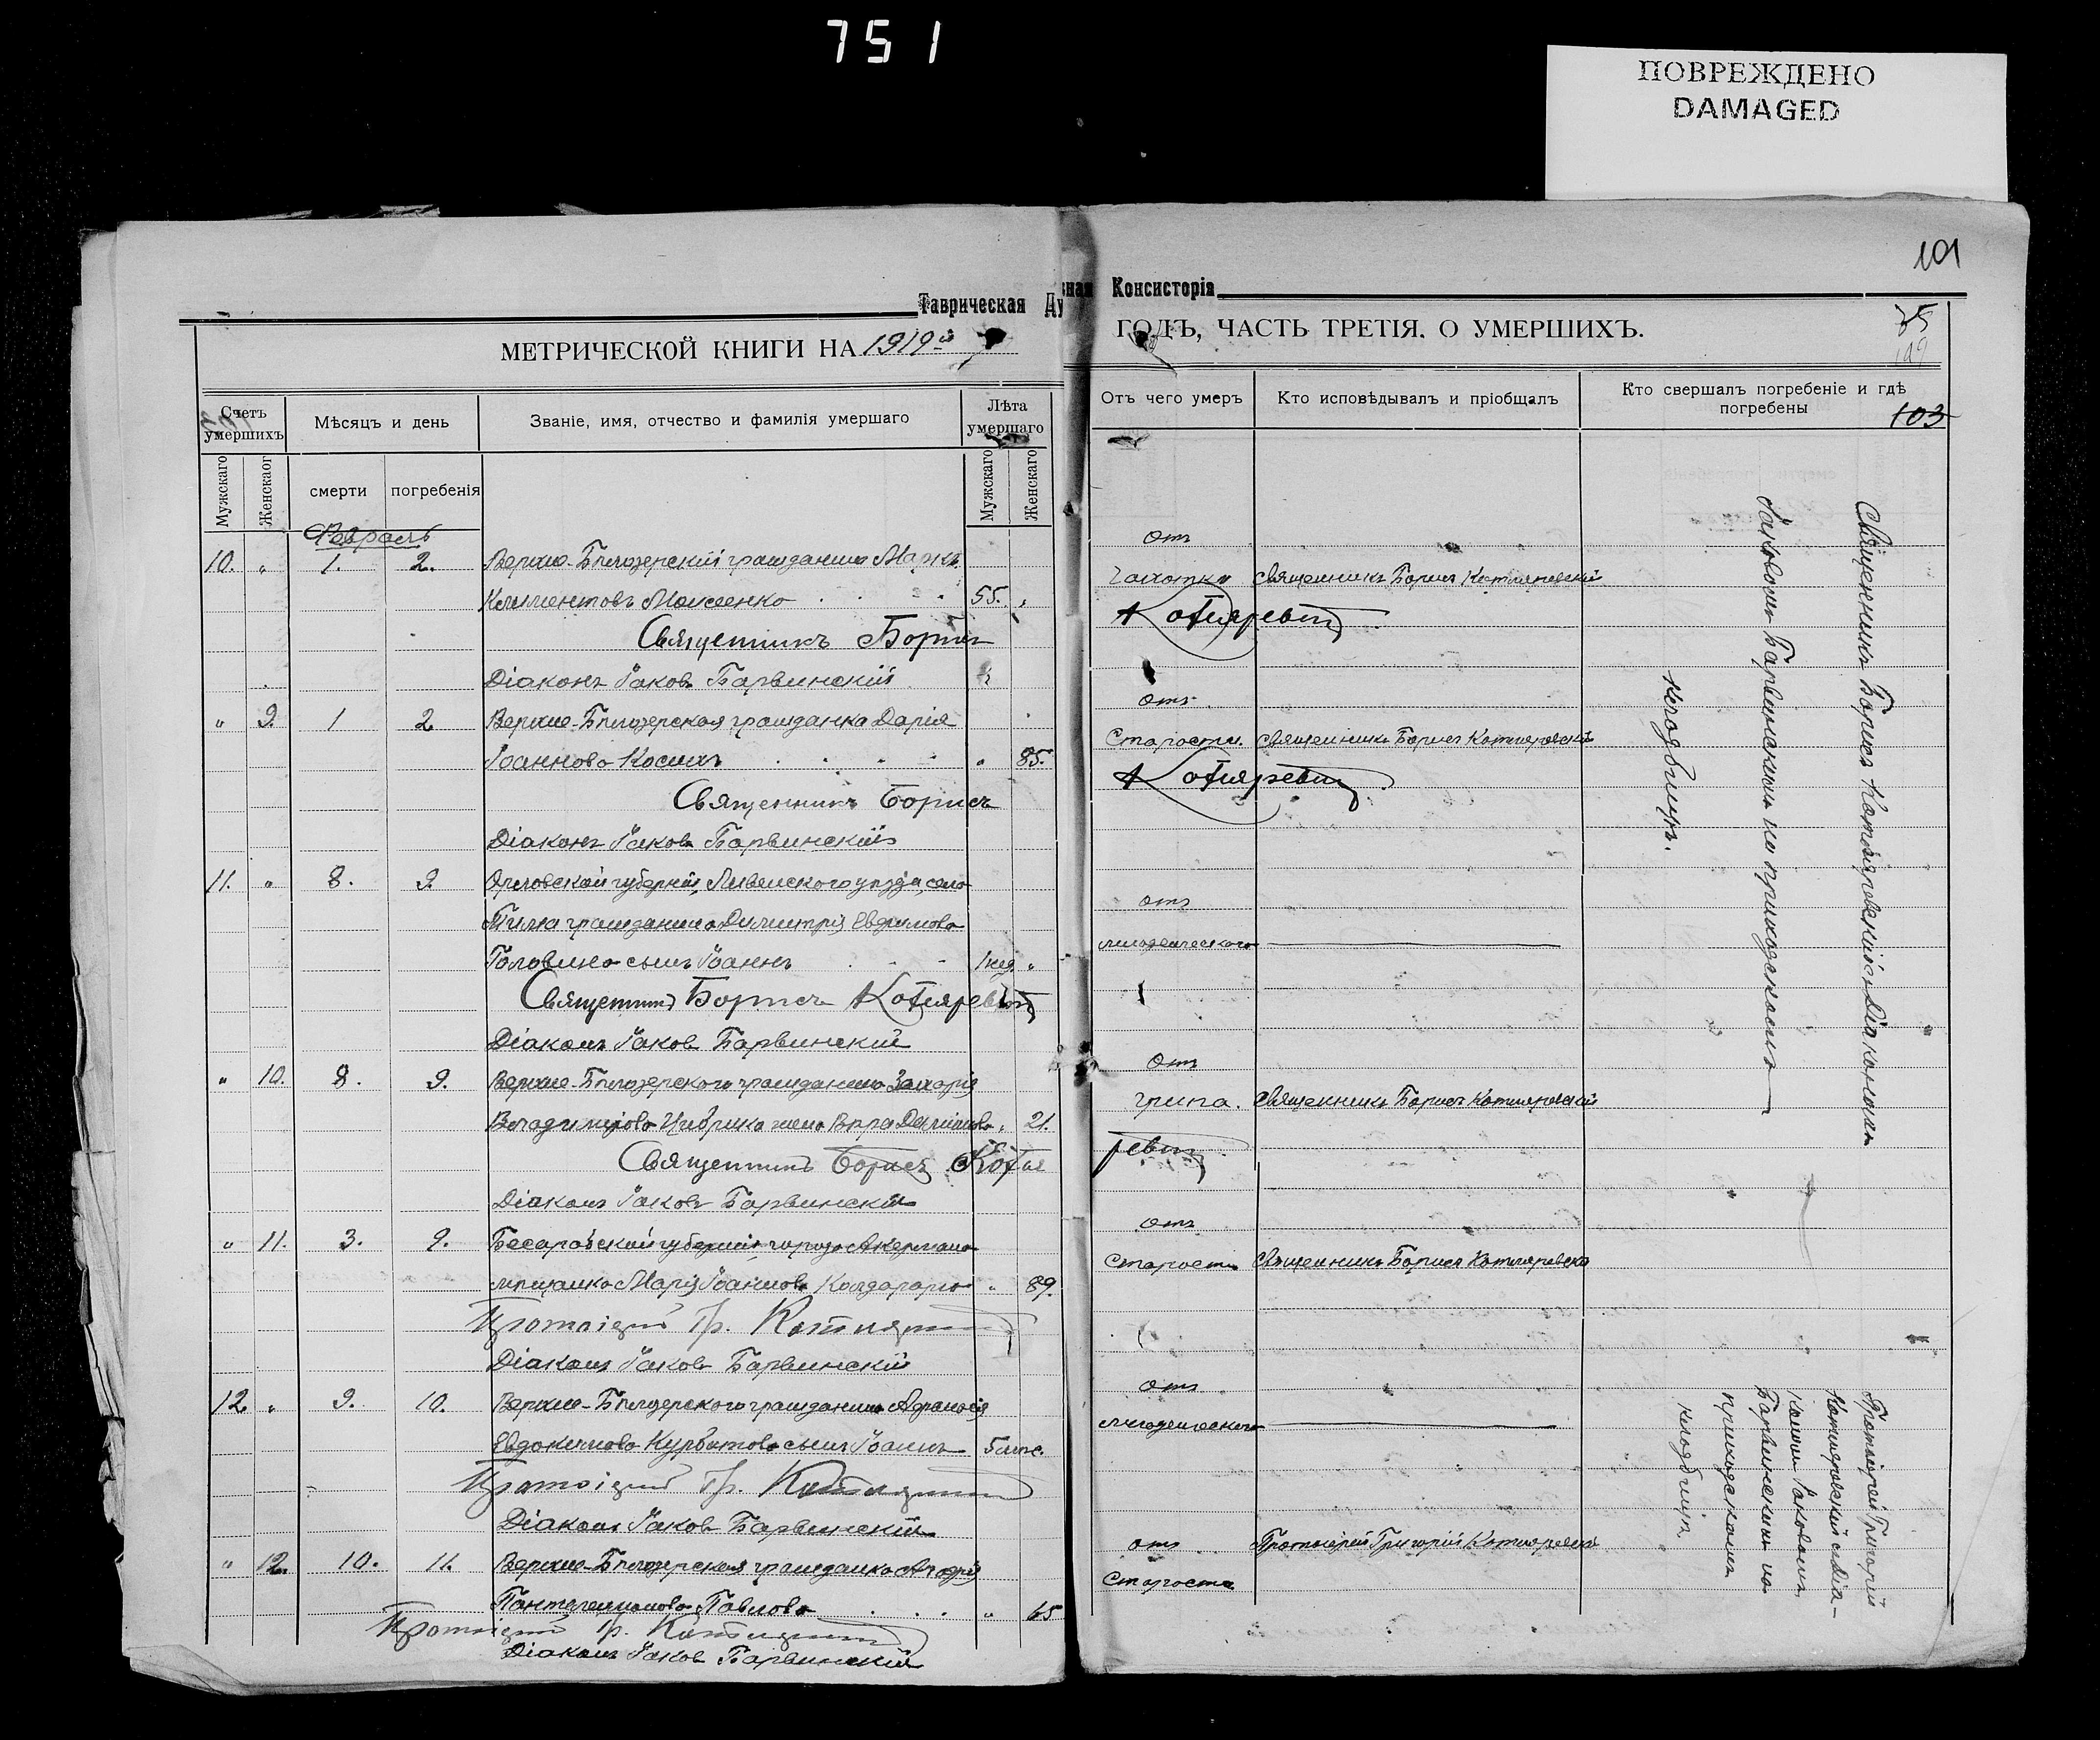 751
ПОВРЕЖДЕНО
DAMAGED
101
Таврическая Ду
вная Консисторія
МЕТРИЧЕСКОЙ КНИГИ НА 1919й
ГОДЪ, ЧАСТЬ ТРЕТІЯ. О УМЕРШИХЪ.
Счетъ умершихъ
Мѣсяцъ и день
Званіе, имя, отчество и фамилія умершаго
Лѣта умершаго
Отъ чего умеръ
Кто исповѣдывалъ и пріобщалъ
Кто свершалъ погребеніе и гдѣ погребены
103
Мужскаго
Женскаог
смерти
погребенія
Мужскаго
Женскаго
Февраль
10. " 1. 2. Верхне-Бѣлозерскій гражданинъ Маркъ
Климентовъ Моисеенко 55. "
отъ
чахотки Священникъ Борисъ Котляревскій
Священникъ Борисъ Котляревскій
Діаконъ Іаковъ Барвинскій
" 9. 1 2 Верхне-Бѣлозерская гражданка Дарія
Іоаннова Косихъ " 85.
отъ
Старости. Священникъ Борисъ Котляревскій
Священникъ Борисъ Котляревскій
Діаконъ Іаковъ Барвинскій
11. " 8. 9. Орловской губерніи, Ливенского уѣзда, села
гражданина Димитрія Евфимова
Головина сынъ Іоаннъ 1 нед. "
отъ
младенческого
Священникъ Борисъ Котляревскій
Діаконъ Іаковъ Барвинскій
" 10. 8. 9. Верхне-Бѣлозерского гражданина Захарія
Владимірова Цибрика жена Вѣра " 21.
отъ
грипа. Священникъ Борисъ Котляревскій
Священникъ Борисъ Котляревскій
Діаконъ Іаковъ Барвинскій
" 11. 3. 9. Бесарабской губерніи города Акермана
мѣщанка Марія Іоаннова " 89.
отъ
Старости Священникъ Борисъ Котляревскій
Протоіерей Гр. Котляревскій
Діаконъ Іаковъ Барвинскій
12. " 9. 10. Верхне-Бѣлозерского гражданина Афанасія
Евдокимова Курбатова сынъ Іоаннъ 5 мѣс.
отъ
младенческого
Протоіерей Гр. Котляревскій
Діаконъ Іаковъ Барвинскій
" 12. 10. 11. Верхне-Бѣлозерская гражданка
Пантелеимонова Павлова " 65
отъ Протоіерей Григорій Котляревскій
Старости
Протоіерей Гр. Котляревскій
Діаконъ Іаковъ Барвинскій
Священникъ Борисъ Котляревскій съ Діакономъ
Іаковомъ Барвинскимъ на приходскомъ
кладбищѣ.
Протоіерей Григорій
Котляревскій съ Діа-
кономъ Іаковомъ
Барвинскимъ на
приходскомъ
кладбищѣ